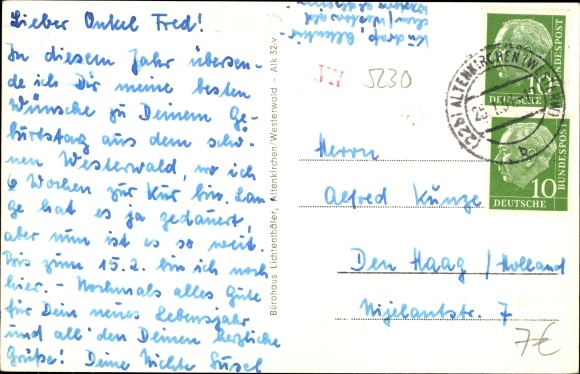 Lieber Onkel Fred!
In diesem Jahr übersen-
de ich Dir meine besten
Wünsche zu Deinem Ge-
burtstag aus dem schö-
nen Westerwald, wo ich
6 Wochen zur Kur bin. Lan-
ge hat es ja gedauert,
aber nun ist es so weit.
Bis zum 15.2. bin ich noch
hier. - Nochmals alles Gute
für Dein neues Lebensjahr
und all' den Deinen herzliche
Grüße! Deine Nichte Susel
Bürohaus Lichtenthäler, Altenkirchen/Westerwald - Alk 32-v
5230
Herrn
Alfred Kunze
Den Haag / Holland
Nijelantstr. 7
7€
(22b) ALTENKIRCHEN (WESTERWALD)
b
DEUTSCHE BUNDESPOST
10
DEUTSCHE BUNDESPOST
10